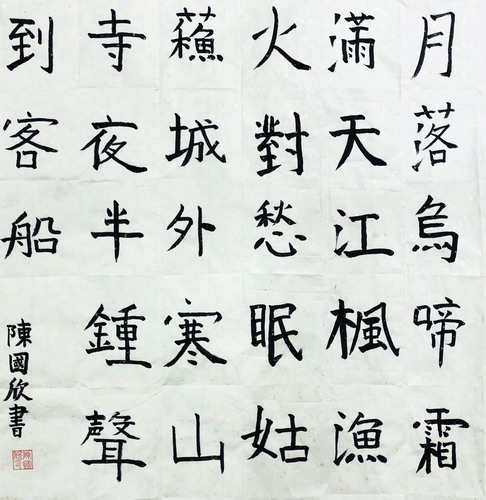 月落烏啼霜
滿天江楓漁
火對愁眠姑
蘓城外寒山
寺夜半鍾聲
到客船
陳國欣書